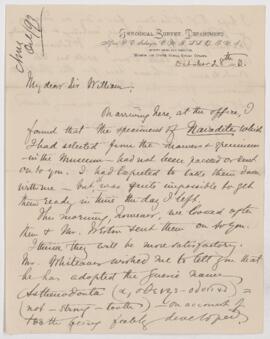 Geological Survey Department
Museum and Office, Sussex Street, Ottawa
October 28th
My dear Sir William,
On arriving here, at the office, I
found that the specimens of Naiadites which
I had selected from the drawers & specimens
in the Museum had not been packed or sent
on to you. I had expected to take them down
with me - but it was quite impossible to get
them ready in time the day I left.
This morning, however, we looked after
them & Mr. Weston sent them on to you.
I think they will be more satisfactory.
Mr. Whiteaves wished me to tell you that
he has adopted the generic name
Asthenodonta
(not - strong - tooth) on account of
the being feebly developed.